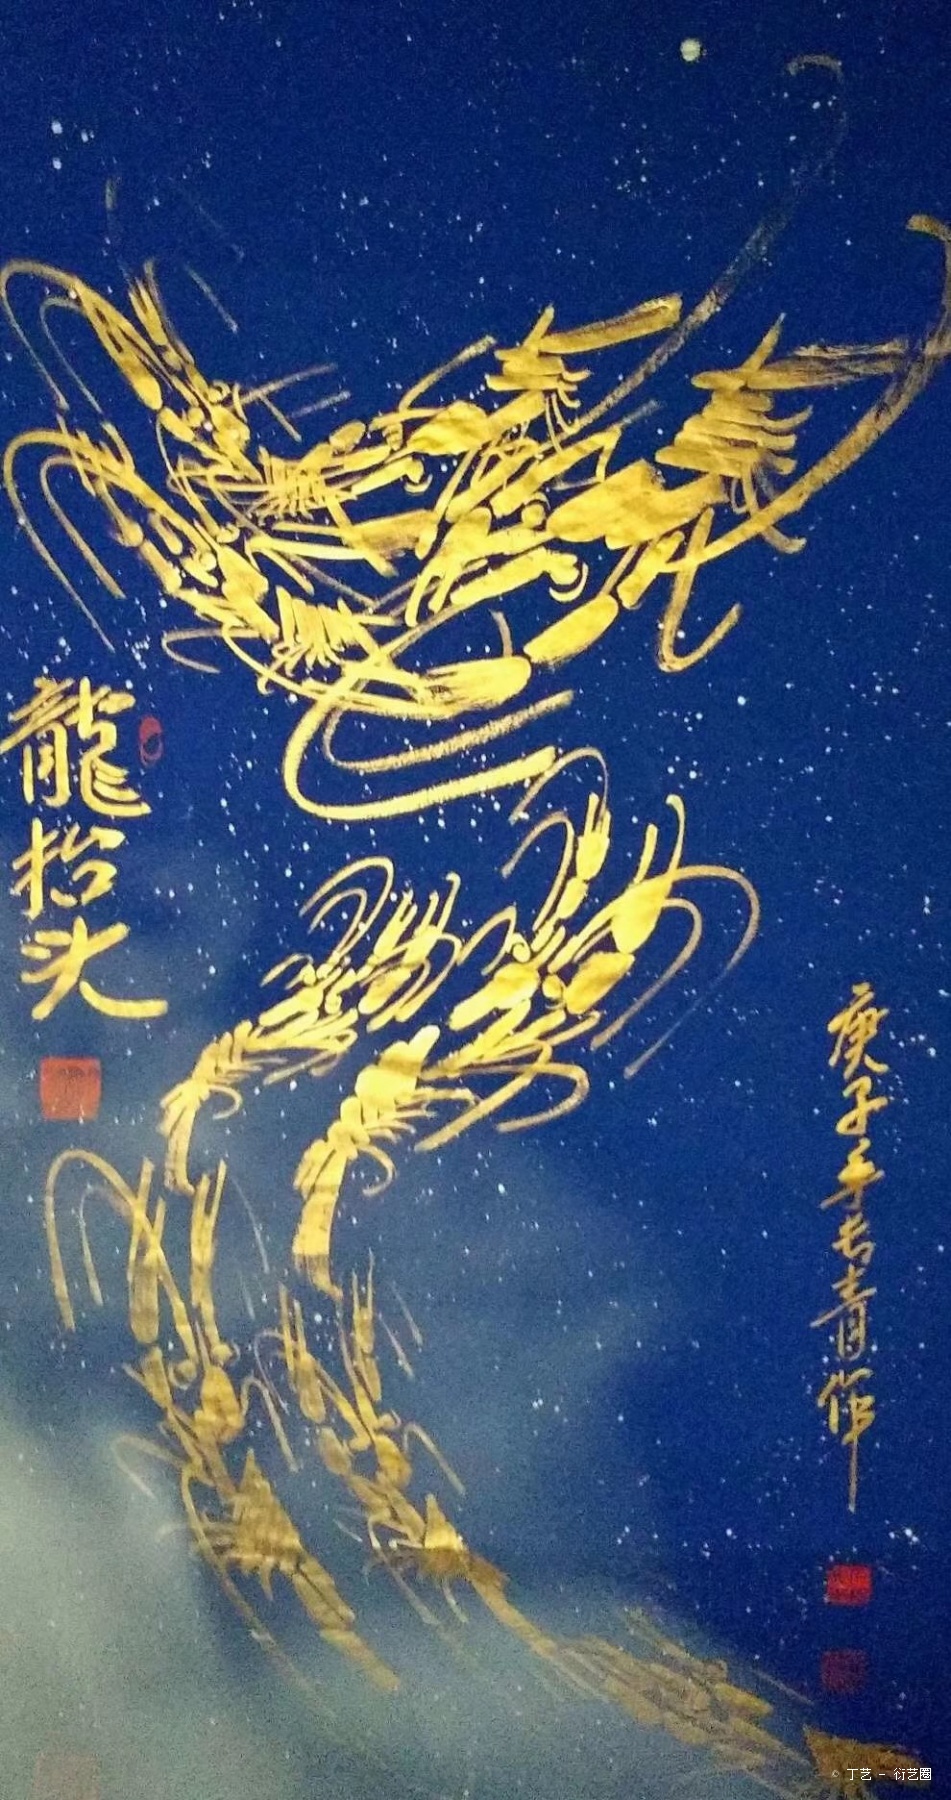 龍抬头
庚子年长青作
© 丁艺 - 衍艺圈